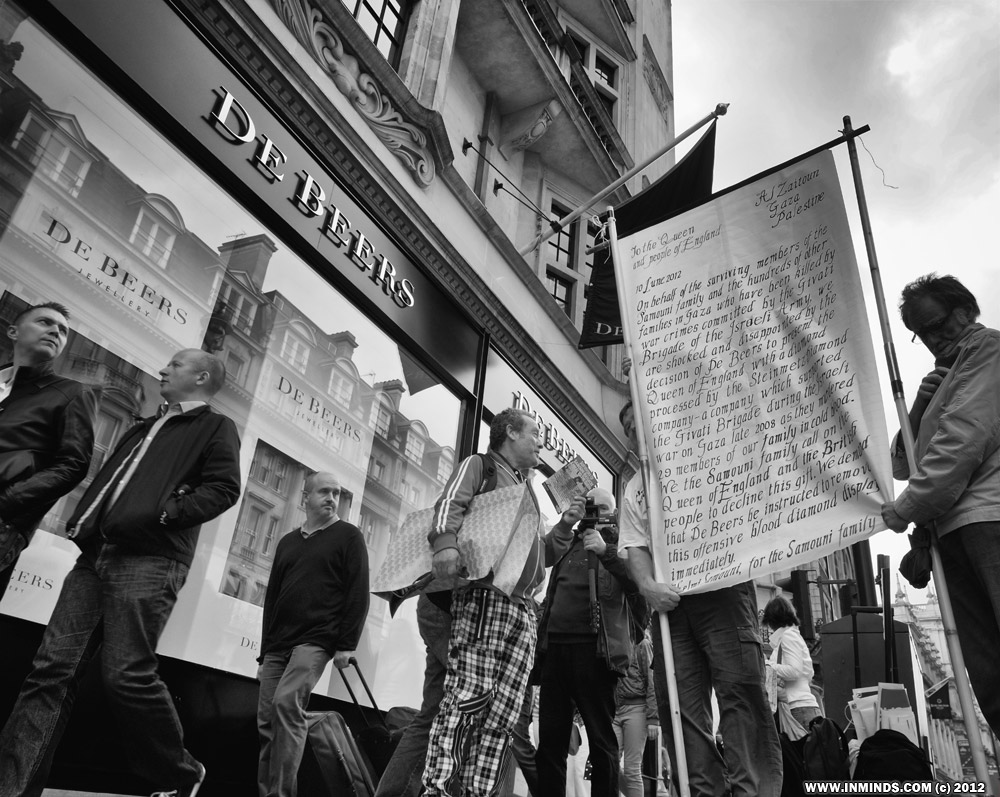 DE BEERS
DE BEERS
JEWELLERY
DE BEERS
JEWELLERY
DE BEERS
BEERS
DE
Al Zaitoun
Gaza
Palestine
To the Queen
and people of England
10 June 2012
On behalf of the surviving members of the
Samouni family and the hundreds of other
families in Gaza who have been killed by
war crimes committed by the Givati
Brigade of the Israeli Army, we
are shocked and disappointed by the
decision of De Beers to present the
Queen of England with a diamond
processed by the Steinmetz Diamond
company - a company which supported
the Givati Brigade during the Israeli
war on Gaza late 2008 as they murdered
29 members of our family in cold blood.
We the Samouni family call on the
Queen of England and the British
people to decline this gift. We demand
that De Beers be instructed to remove
this offensive blood diamond display
immediately.
Samouni, for the Samouni family
WWW.INMINDS.COM (c) 2012